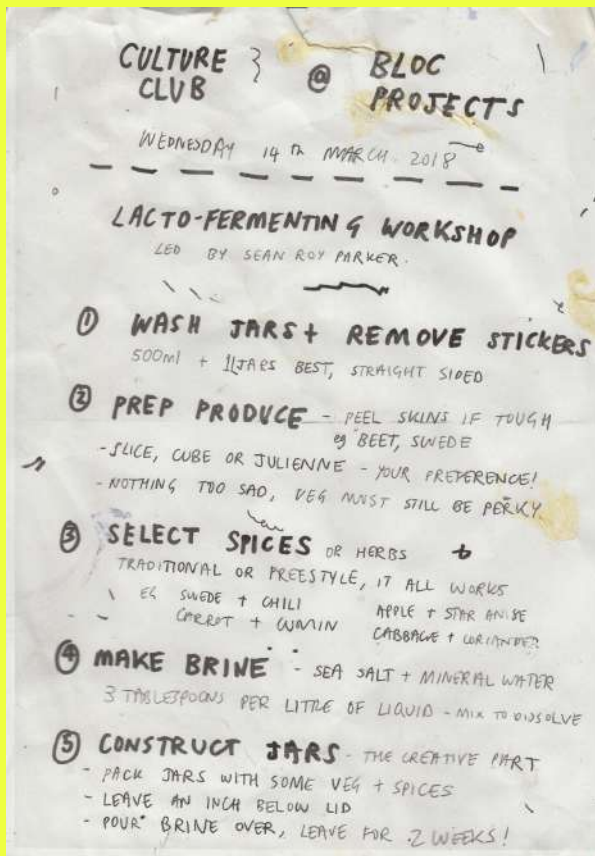 CULTURE } @ BLOC
CLUB PROJECTS
WEDNESDAY 14TH MARCH 2018
LACTO-FERMENTING WORKSHOP
LED BY SEAN ROY PARKER.
① WASH JARS + REMOVE STICKERS
500ml + 1L JARS BEST, STRAIGHT SIDED
② PREP PRODUCE - PEEL SKINS IF TOUGH
eg BEET, SWEDE
- SLICE, CUBE OR JULIENNE - YOUR PREFERENCE!
- NOTHING TOO SAD, VEG MUST STILL BE PERKY
③ SELECT SPICES OR HERBS
TRADITIONAL OR FREESTYLE, IT ALL WORKS
EG SWEDE + CHILI APPLE + STAR ANISE
CARROT + CUMIN CABBAGE + CORIANDER
④ MAKE BRINE - SEA SALT + MINERAL WATER
3 TABLESPOONS PER LITRE OF LIQUID - MIX TO DISSOLVE
⑤ CONSTRUCT JARS - THE CREATIVE PART
- PACK JARS WITH SOME VEG + SPICES
- LEAVE AN INCH BELOW LID
- POUR BRINE OVER, LEAVE FOR 2 WEEKS!